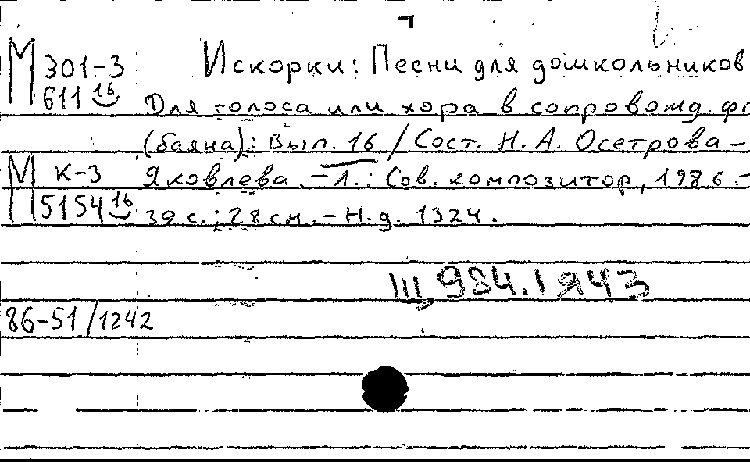 М 301-3 Искорки: Песни для дошкольников
611 16 Для голоса или хора в сопровожд. фо
(баяна): Вып. 16 / Сост. Н. А. Осетрова-
М К-3 Яковлева. – Л.: Сов. композитор, 1986.-
5154 16 39 с.; 28 см. – Н.д. 1324.
III 984.1 Я43
86-51/1242